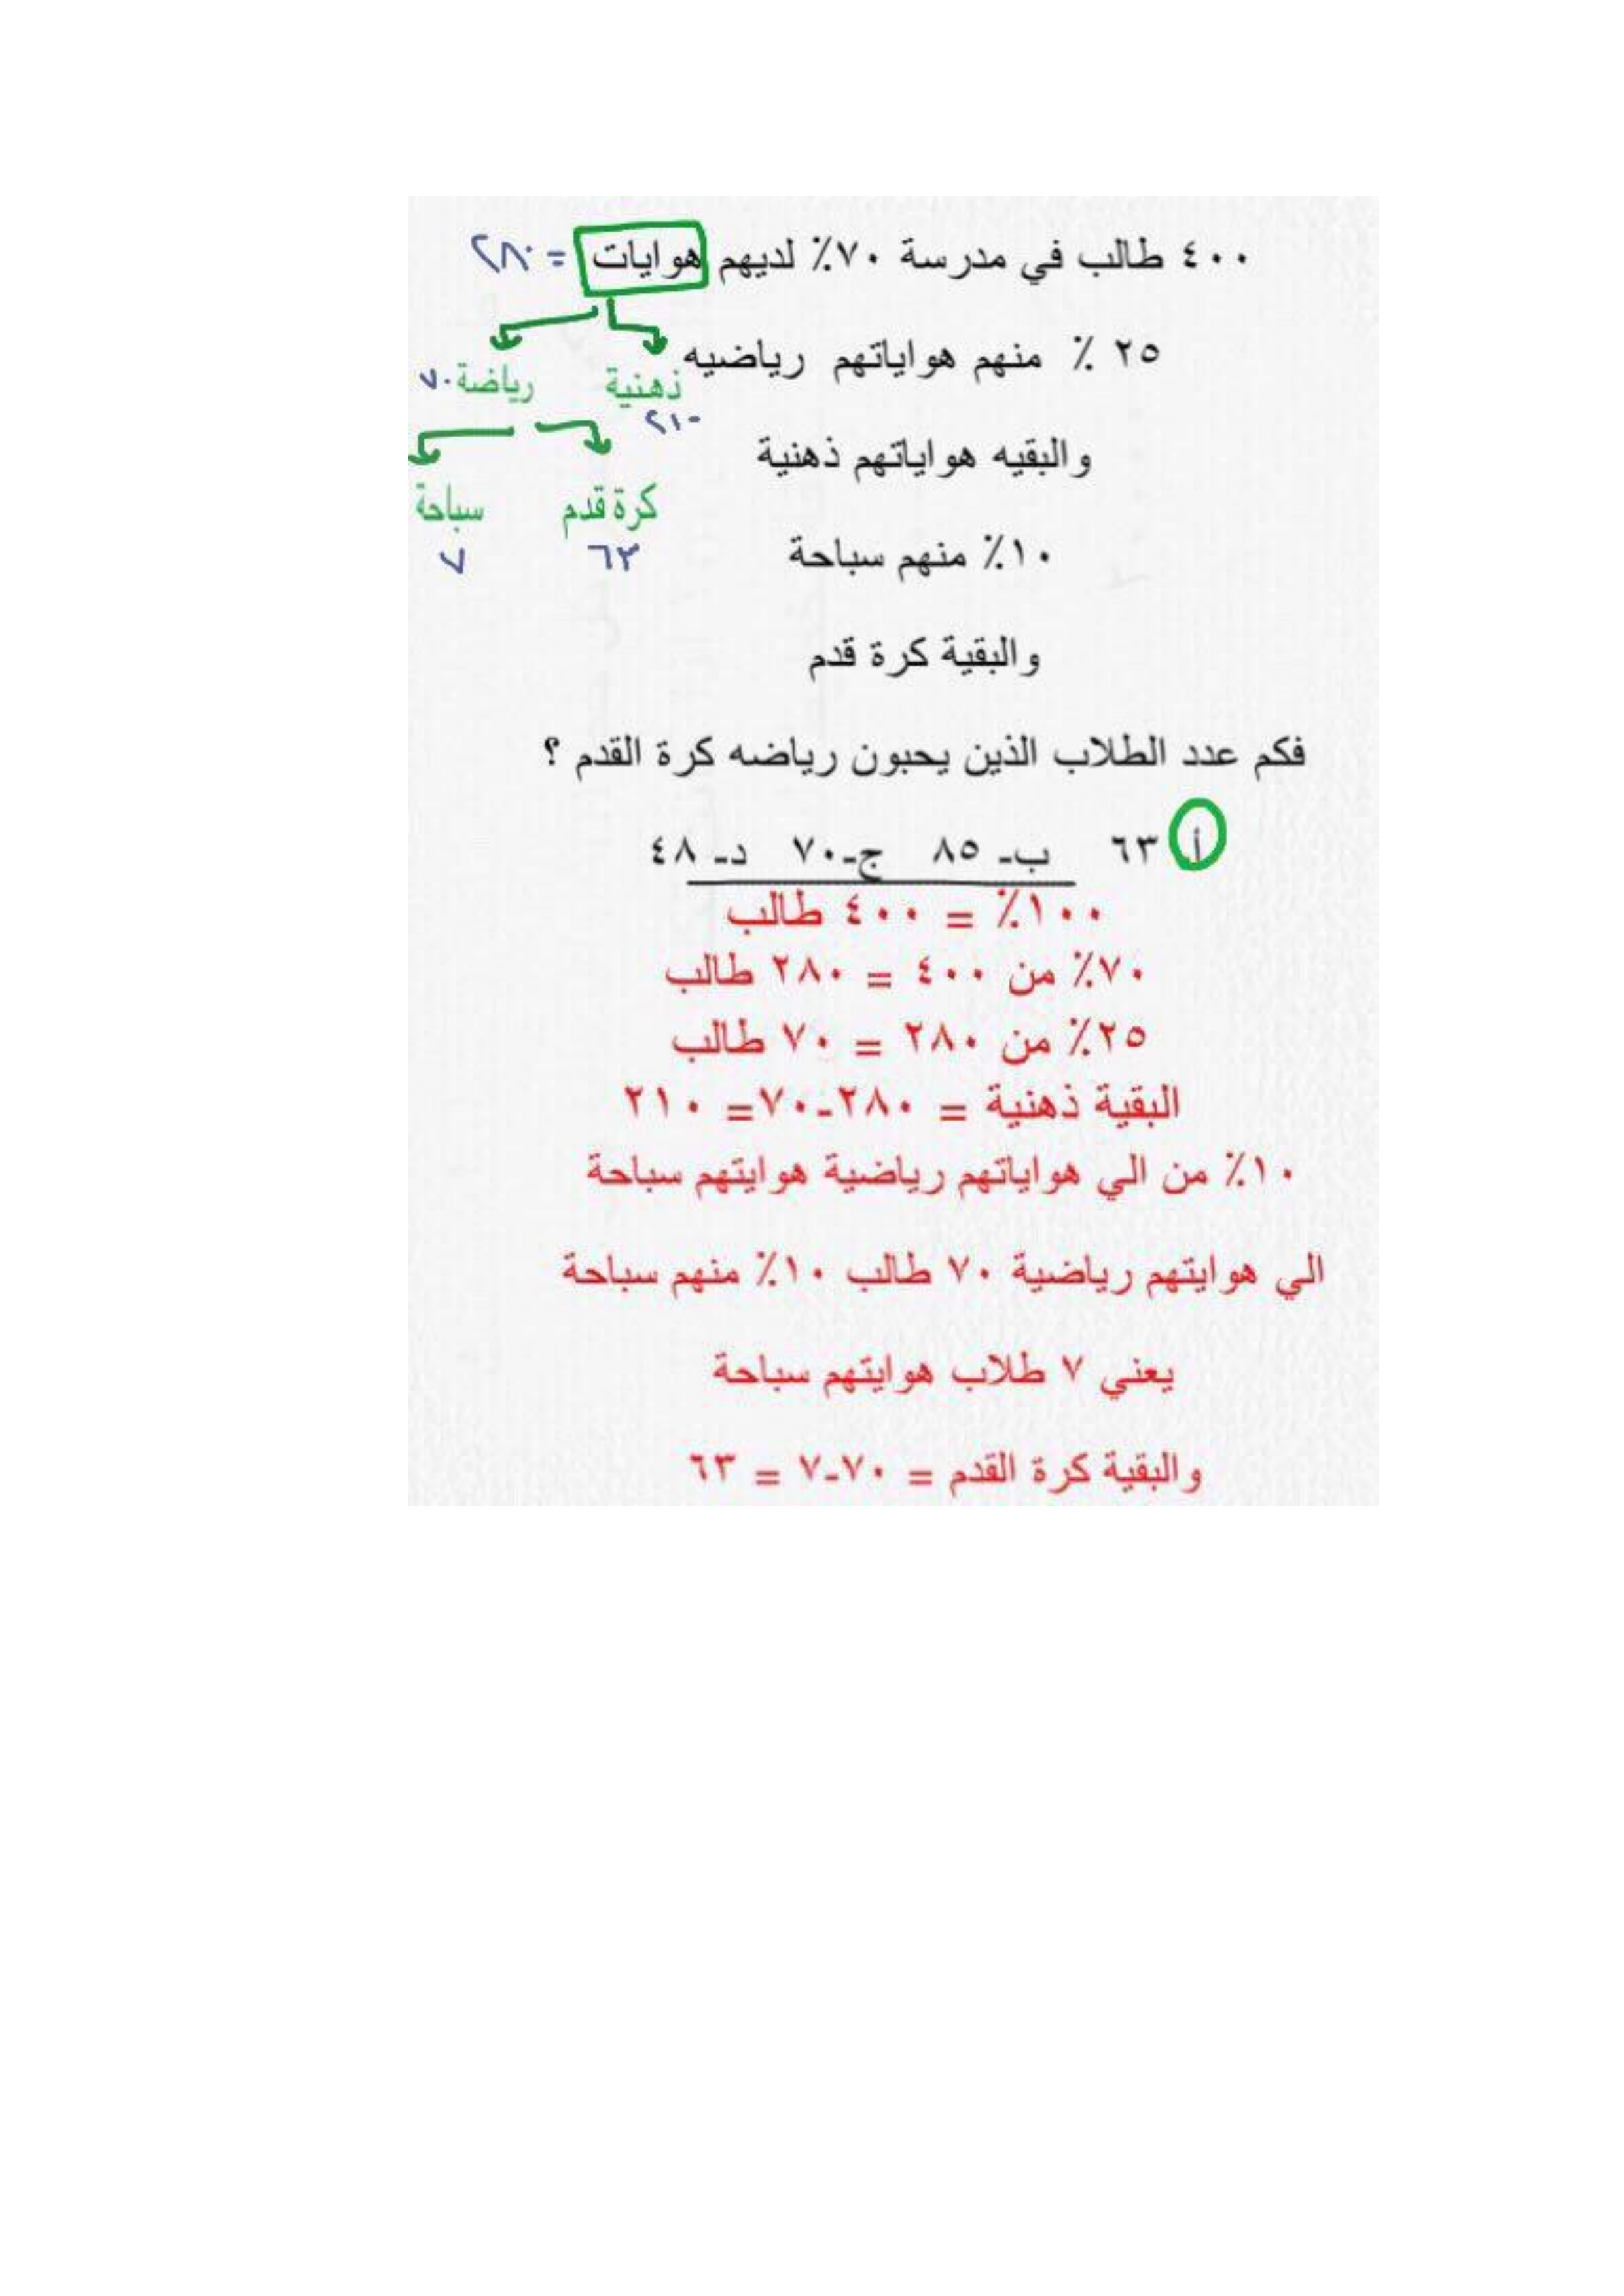 ٤٠٠ طالب في مدرسة ٧٠٪ لديهم هوايات = ٢٨٠
٢٥ ٪ منهم هواياتهم رياضيه
ذهنية رياضة ٧٠
٢١٠
والبقيه هواياتهم ذهنية
كرة قدم سباحة
٦٣ ٧
١٠٪ منهم سباحة
والبقية كرة قدم
فكم عدد الطلاب الذين يحبون رياضه كرة القدم ؟
أ ٦٣ ب- ٨٥ ج-٧٠ د- ٤٨
١٠٠٪ = ٤٠٠ طالب
٧٠٪ من ٤٠٠ = ٢٨٠ طالب
٢٥٪ من ٢٨٠ = ٧٠ طالب
البقية ذهنية = ٢٨٠-٧٠= ٢١٠
١٠٪ من الي هواياتهم رياضية هوايتهم سباحة
الي هوايتهم رياضية ٧٠ طالب ١٠٪ منهم سباحة
يعني ٧ طلاب هوايتهم سباحة
والبقية كرة القدم = ٧٠-٧ = ٦٣